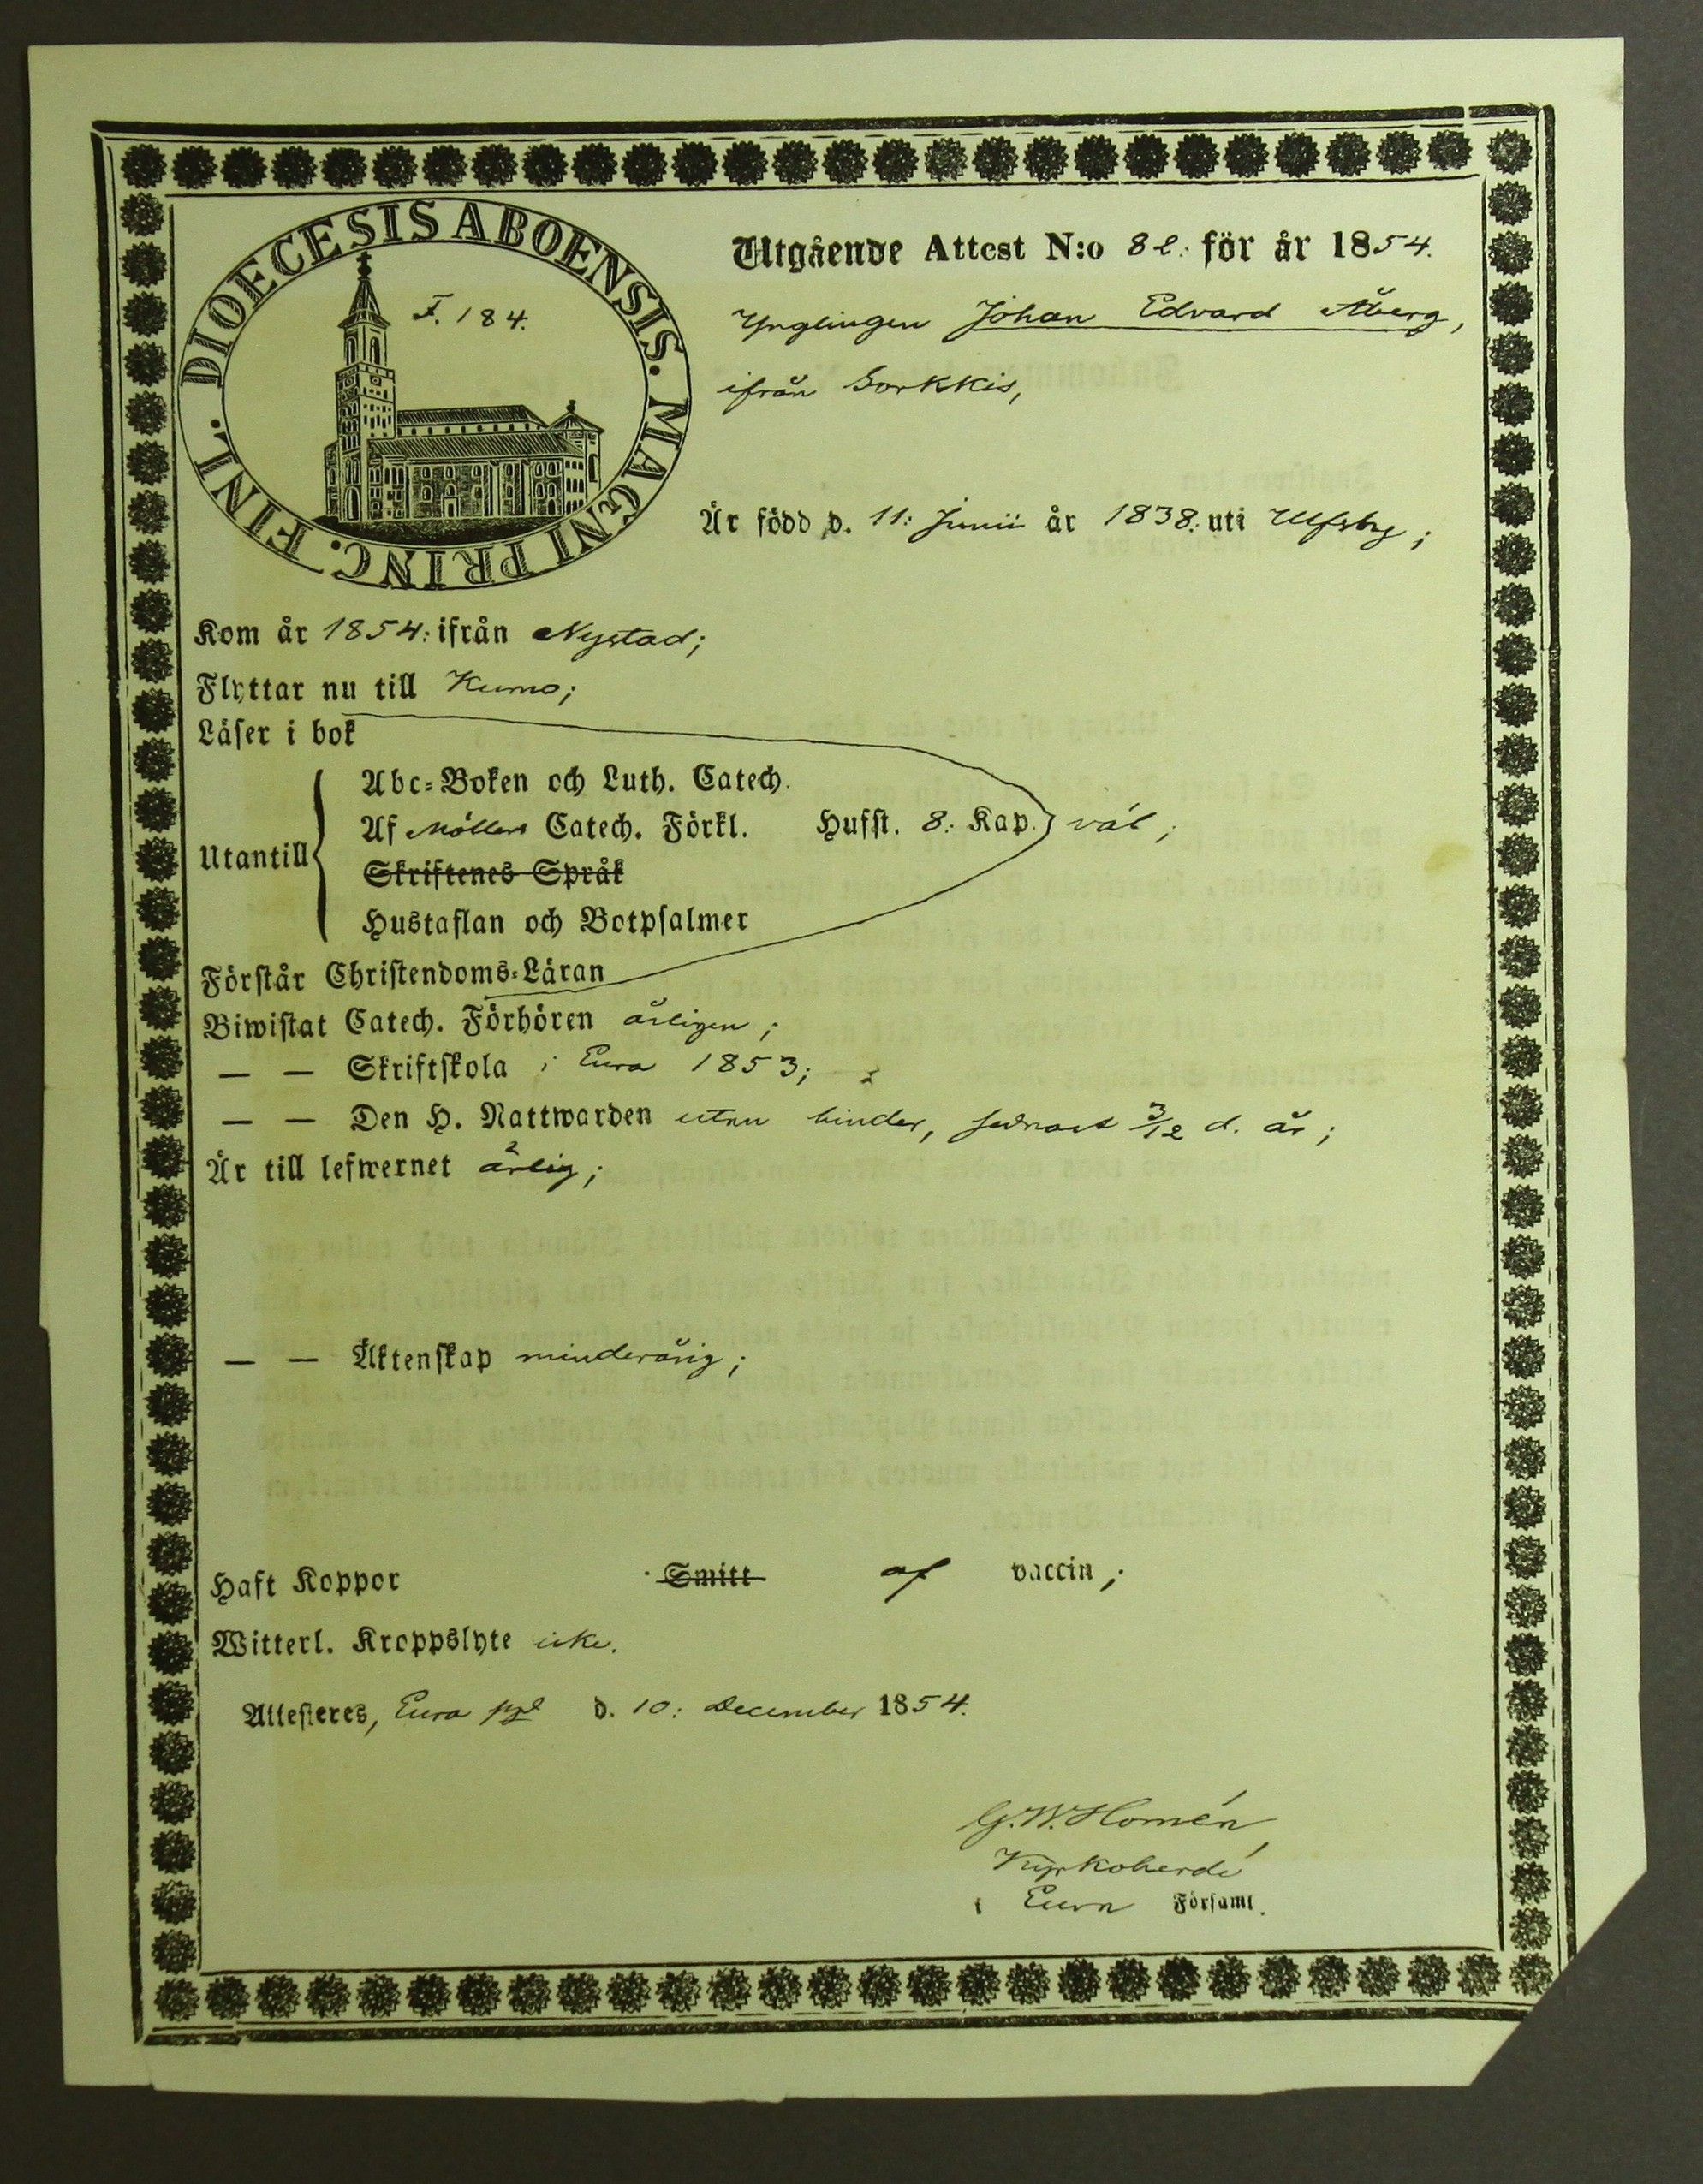 DIOECESIS ABOENSIS. MAGNI PRINC. FINL.
F. 184.
Utgående Attest N:o 82. för år 1854.
Ynglingen Johan Edvard Åberg,
ifrån Sorkkis,
Är född d. 11: Junii år 1838: uti Ulfsby;
Kom år 1854: ifrån Nystad;
Flyttar nu till Kumo;
Läser i bok
Utantill
Abc-Boken och Luth. Catech.
Af Möllers Catech. Förkl. Husst. 8: Kap. väl;
Skriftenes Språk
Hustaflan och Botpsalmer
Förstår Christendoms-Läran
Biwistat Catech. Förhören årligen;
— — Skriftskola i Eura 1853;
— — Den H. Nattwarden utan hinder, sednast 3/12 d. år;
Är till lefwernet ärlig;
— — Äktenskap minderårig;
Haft Koppor Smitt af vaccin;
Witterl. Kroppslyte icke.
Attesteres, Eura d. 10: December 1854.
G. W. Homén
Kyrkoherde
i Eura Församl.